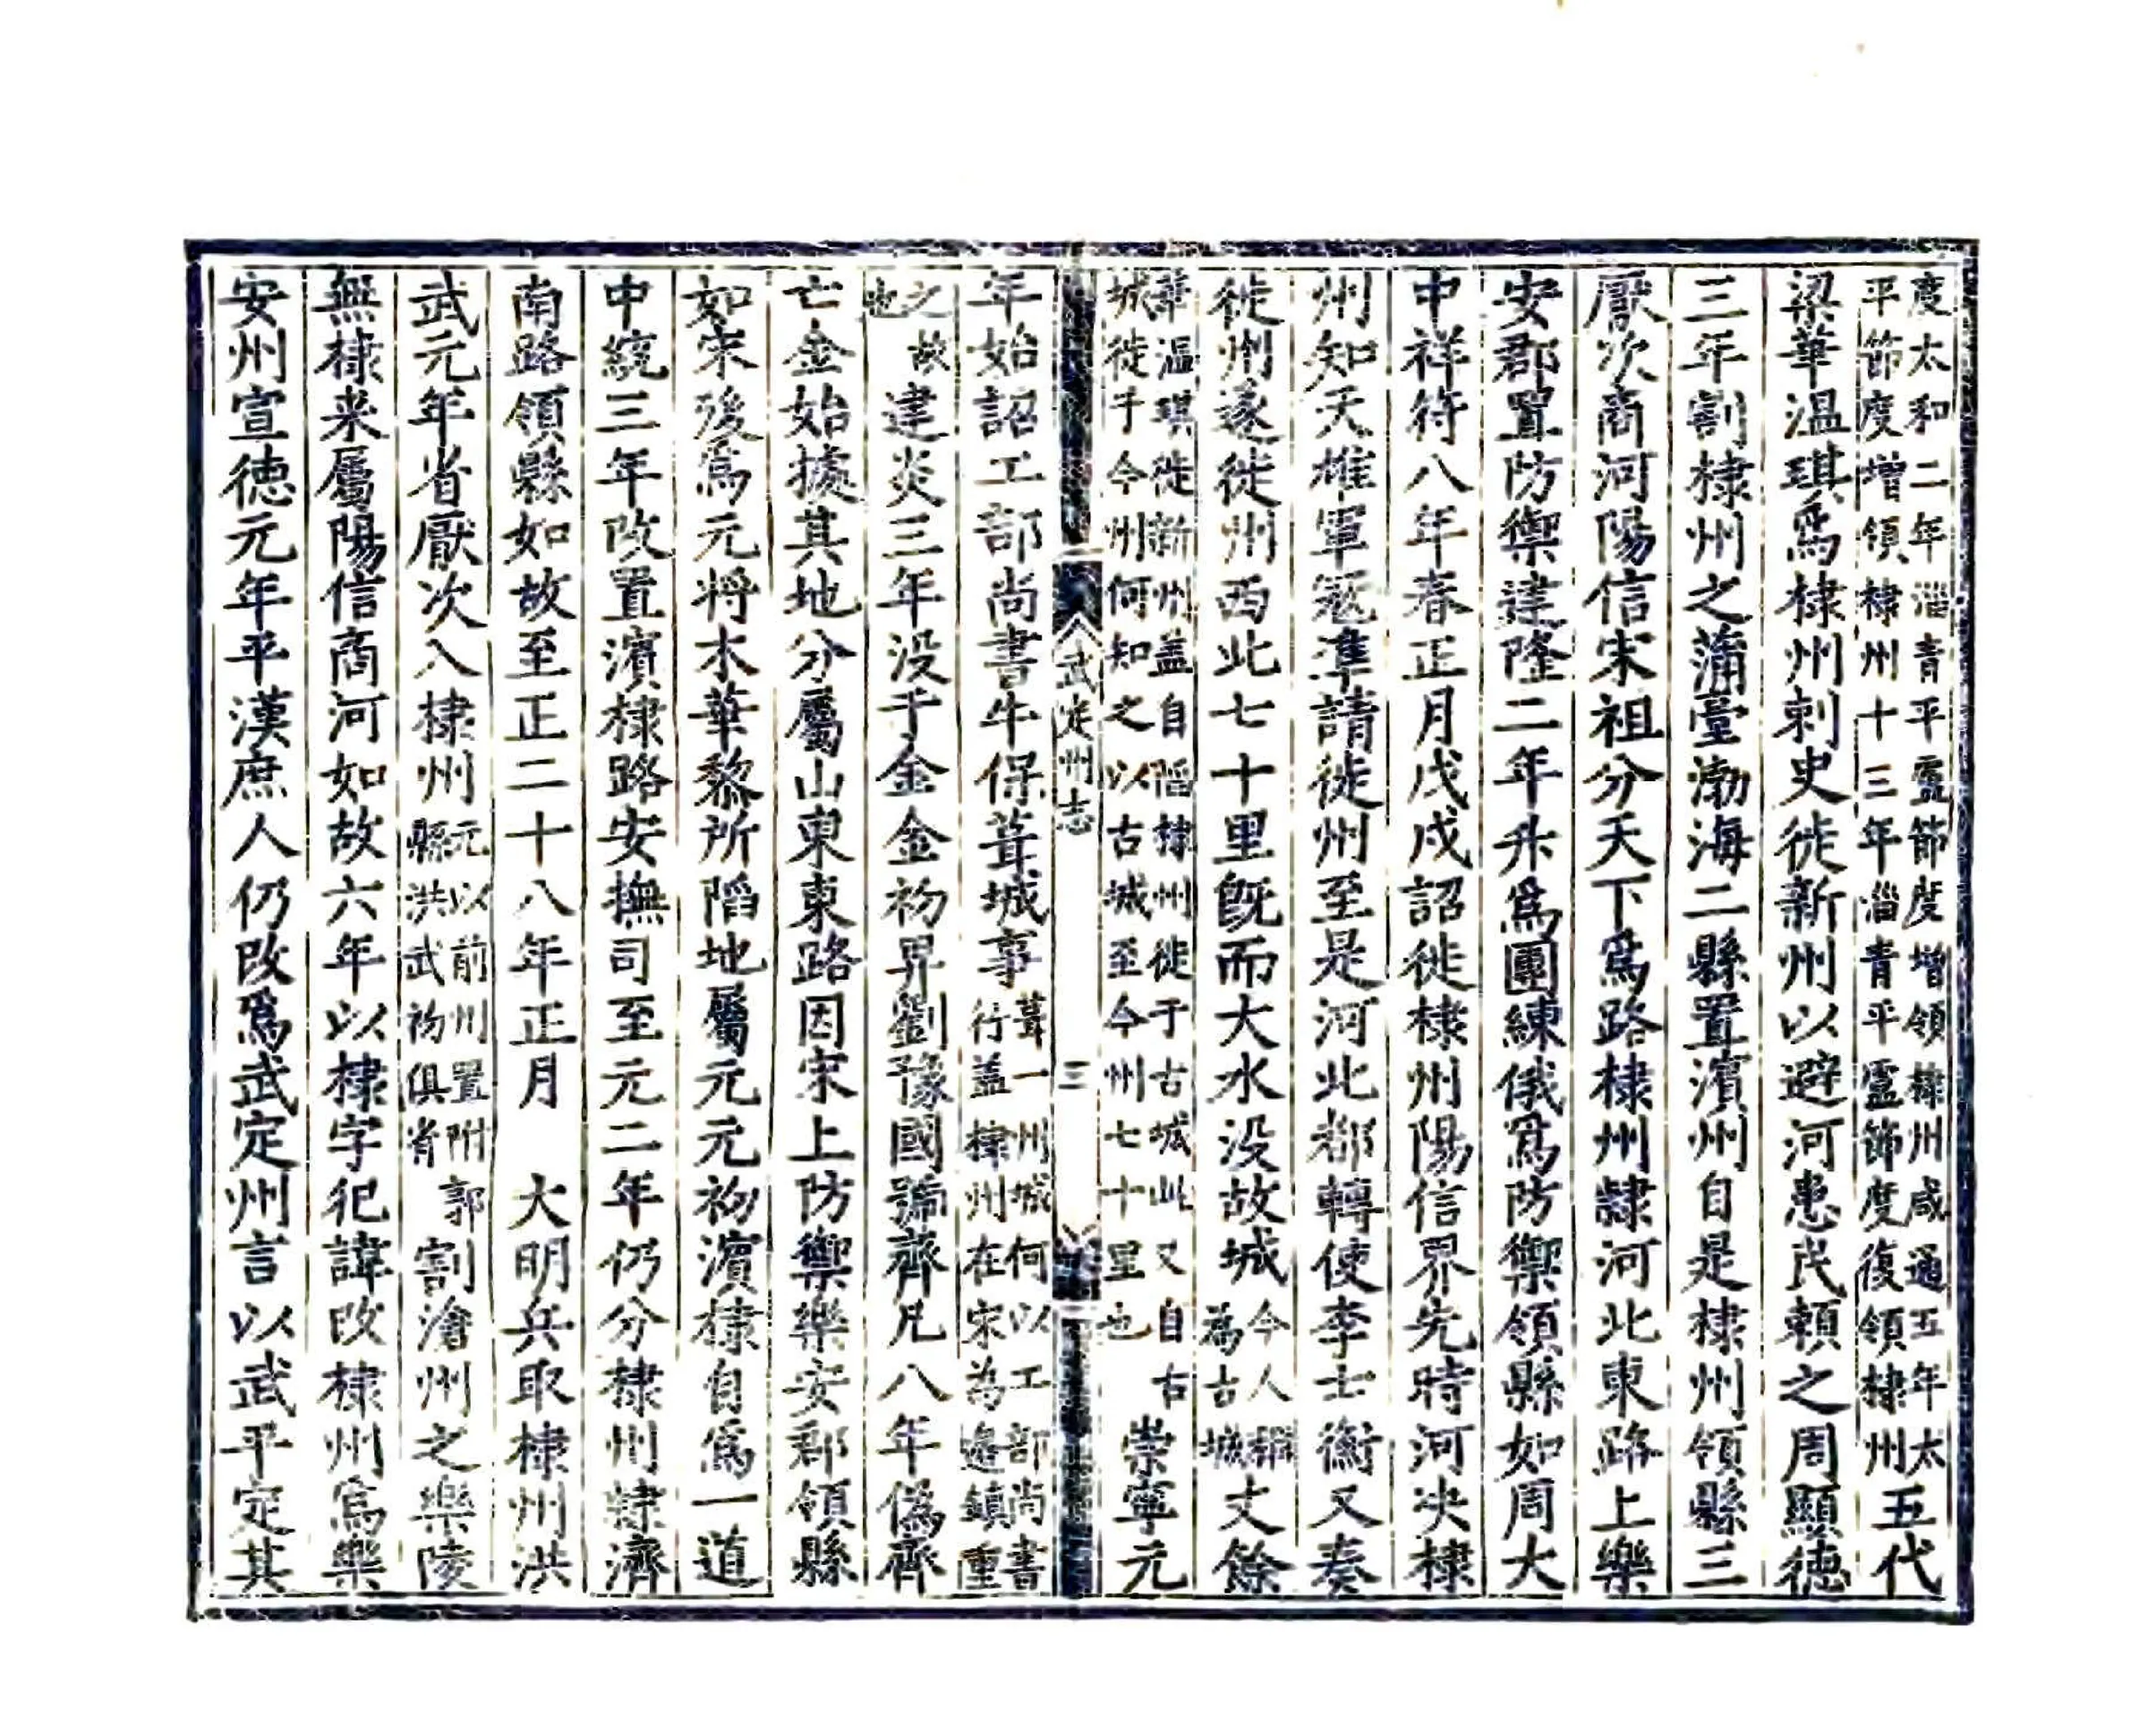 度太和二年淄青平盧節度增領棣州咸通五年太
平節度增領棣州十三年淄青平盧節度復領棣州五代
梁華溫琪爲棣州刺史徙新州以避河患民賴之周顯徳
三年割棣州之蒲臺渤海二縣置濱州自是棣州領縣三
厭次商河陽信宋祖分天下爲路棣州隸河北東路上樂
安郡置防禦建隆二年升爲團練俄爲防禦領縣如周大
中祥符八年春正月戊戌詔徙棣州陽信界先時河决棣
州知天雄軍寇準請徙州至是河北都轉使李士衡又奏
徙州遂徙州西北七十里旣而大水没故城今人稱
為古城丈餘
華溫琪徙新州盖自䧟棣州徙于古城此又自古
城徙于今州何知之以古城至今州七十里也崇寧元
武定州志
三
年始詔工部尚書牛保葺城事葺一州城何以工部尚書
行盖棣州在宋為邊鎮重
之故
也建炎三年没于金金初畀劉豫國號齊凡八年僞齊
亡金始據其地分屬山東東路因宋上防禦樂安郡領縣
如宋後爲元將木華黎所䧟地屬元元初濱棣自爲一道
中統三年改置濱棣路安撫司至元二年仍分棣州隸濟
南路領縣如故至正二十八年正月 大明兵取棣州洪
武元年省厭次入棣州元以前州置附郭
縣洪武初俱省割滄州之樂陵
無棣来屬陽信商河如故六年以棣字犯諱改棣州爲樂
安州宣徳元年平漢庶人仍改爲武定州言以武平定其